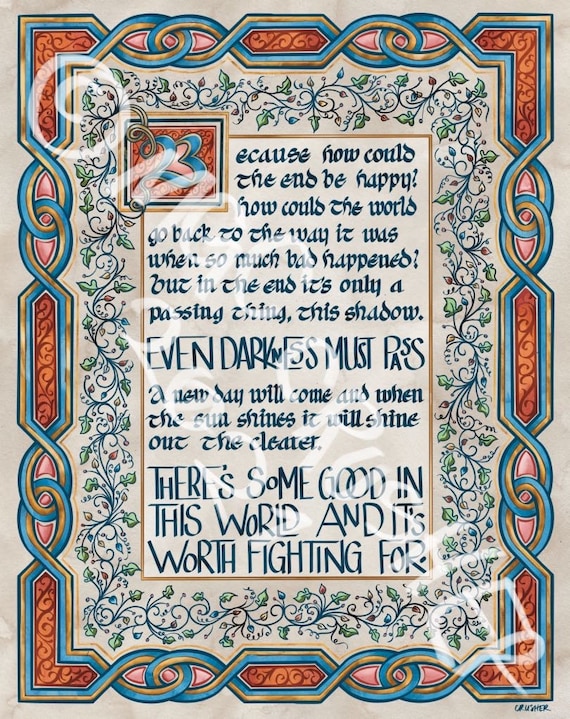 Because how could
the end be happy?
how could the world
go back to the way it was
when so much bad happened?
but in the end it's only a
passing thing, this shadow.
EVEN DARKNESS MUST PASS
A new day will come and when
the sun shines it will shine
out the clearer.
THERE'S SOME GOOD IN
THIS WORLD AND IT'S
WORTH FIGHTING FOR
CRUSHER